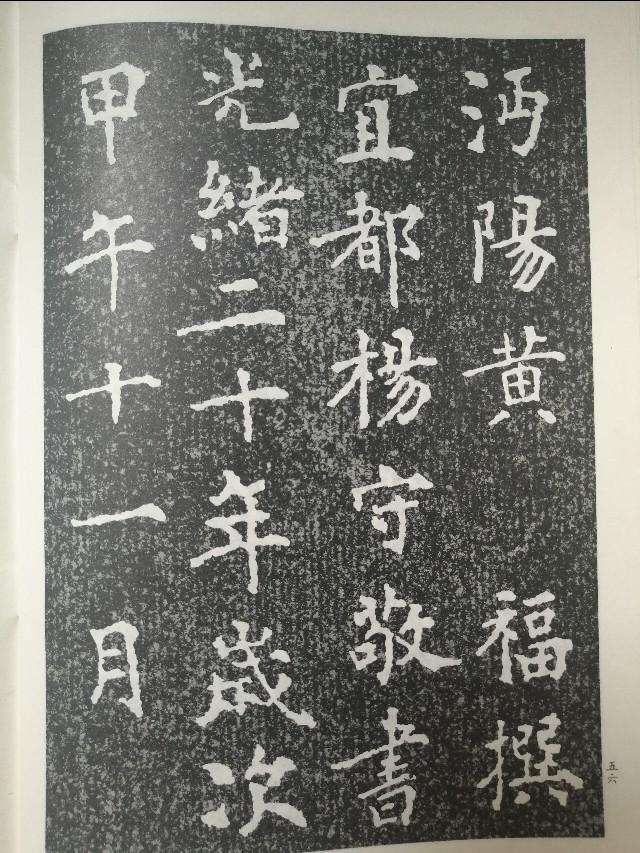 沔陽黄 福撰
宜都楊守敬書
光緒二十年歲次
甲午十一月
五六